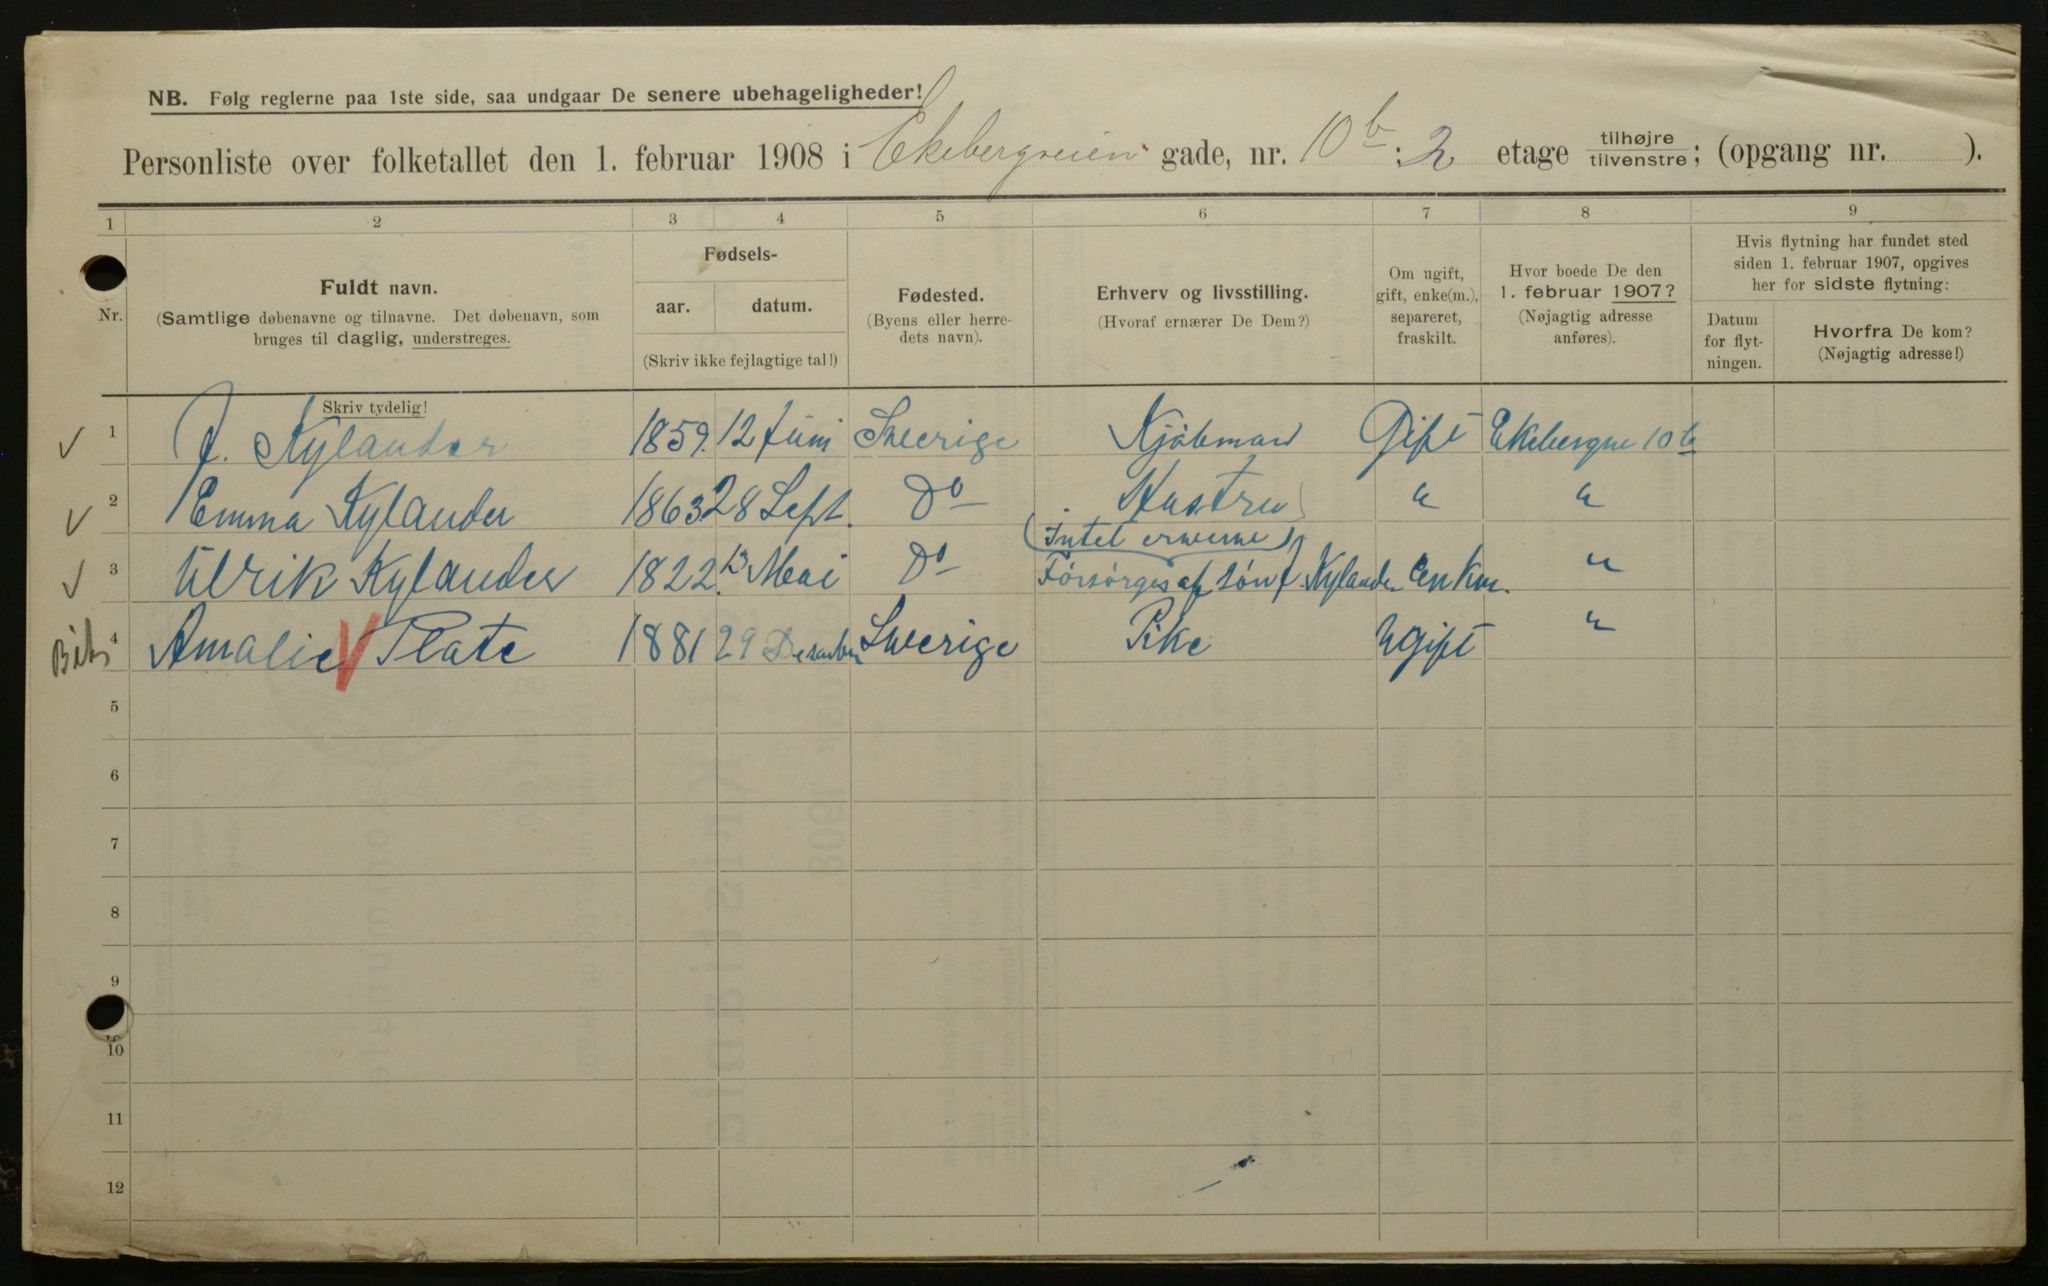 NB. Følg reglerne paa 1ste side, saa undgaar De senere ubehageligheder!
Personliste over folketallet den 1. februar 1908 i Ekebergveien gade, nr. 10b : 2 etage tilhøjre tilvenstre; (opgang nr. ).
1 2 3 4 5 6 7 8 9
Nr.
Fuldt navn.
(Samtlige døbenavne og tilnavne. Det døbenavn, som
bruges til daglig, understreges.
Skriv tydelig!
Fødsels-
aar. datum.
(Skriv ikke fejlagtige tal!)
Fødested.
(Byens eller herre-
dets navn).
Erhverv og livsstilling.
(Hvoraf ernærer De Dem?)
Om ugift,
gift, enke(m.),
separeret,
fraskilt.
Hvor boede De den
1. februar 1907?
(Nøjagtig adresse
anføres).
Hvis flytning har fundet sted
siden 1. februar 1907, opgives
her for sidste flytning:
Datum
for flyt-
ningen.
Hvorfra De kom?
(Nøjagtig adresse!)
1 J. Kylander 1859. 12 Juni Sverige Kjøbmand Gift Ekebergve 10b
2 Emma Kylander 1863 28 Sept. Do Hustru " "
(Intet erverve)
3 Ulrik Kylander 1822. 13 Mai Do Forsørges af søn J. Kylander Enkm. "
4 Amalie Plate 1881 29 Desember Sverige Pike Ugift "
5
6
7
8
9
10
11
12